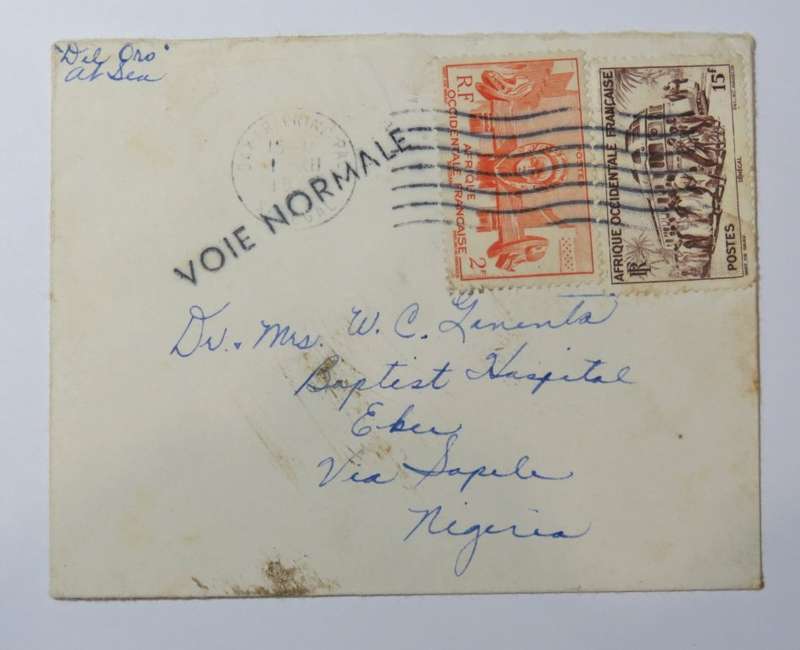 "Del Oro"
At Sea
VOIE NORMALE
RF
AFRIQUE
OCCIDENTALE FRANÇAISE
POSTES
2F
AFRIQUE OCCIDENTALE FRANÇAISE
RF
15F
SÉNÉGAL
POSTES
Dr. & Mrs. W. C.
Baptist Hospital
Eku
Via Sapele
Nigeria